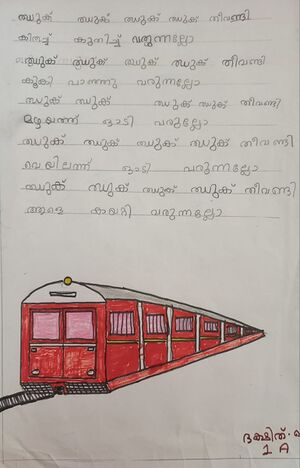 ഝുക് ഝുക് ഝുക് ഝുക് തീവണ്ടി
കിതച്ച് കുനിച്ച് വരുന്നല്ലോ
ഝുക് ഝുക് ഝുക് ഝുക് തീവണ്ടി
കൂകി പാഞ്ഞു വരുന്നല്ലോ
ഝുക് ഝുക് ഝുക് ഝുക് തീവണ്ടി
മഴയത്ത് ഓടി
ഝുക് ഝുക് ഝുക് ഝുക് തീവണ്ടി
വെയിലത്ത് ഓടി
ഝുക് ഝുക് ഝുക് ഝുക് തീവണ്ടി
ആളെ കയറ്റി വരുന്നല്ലോ
ദക്ഷിത്.
1 A